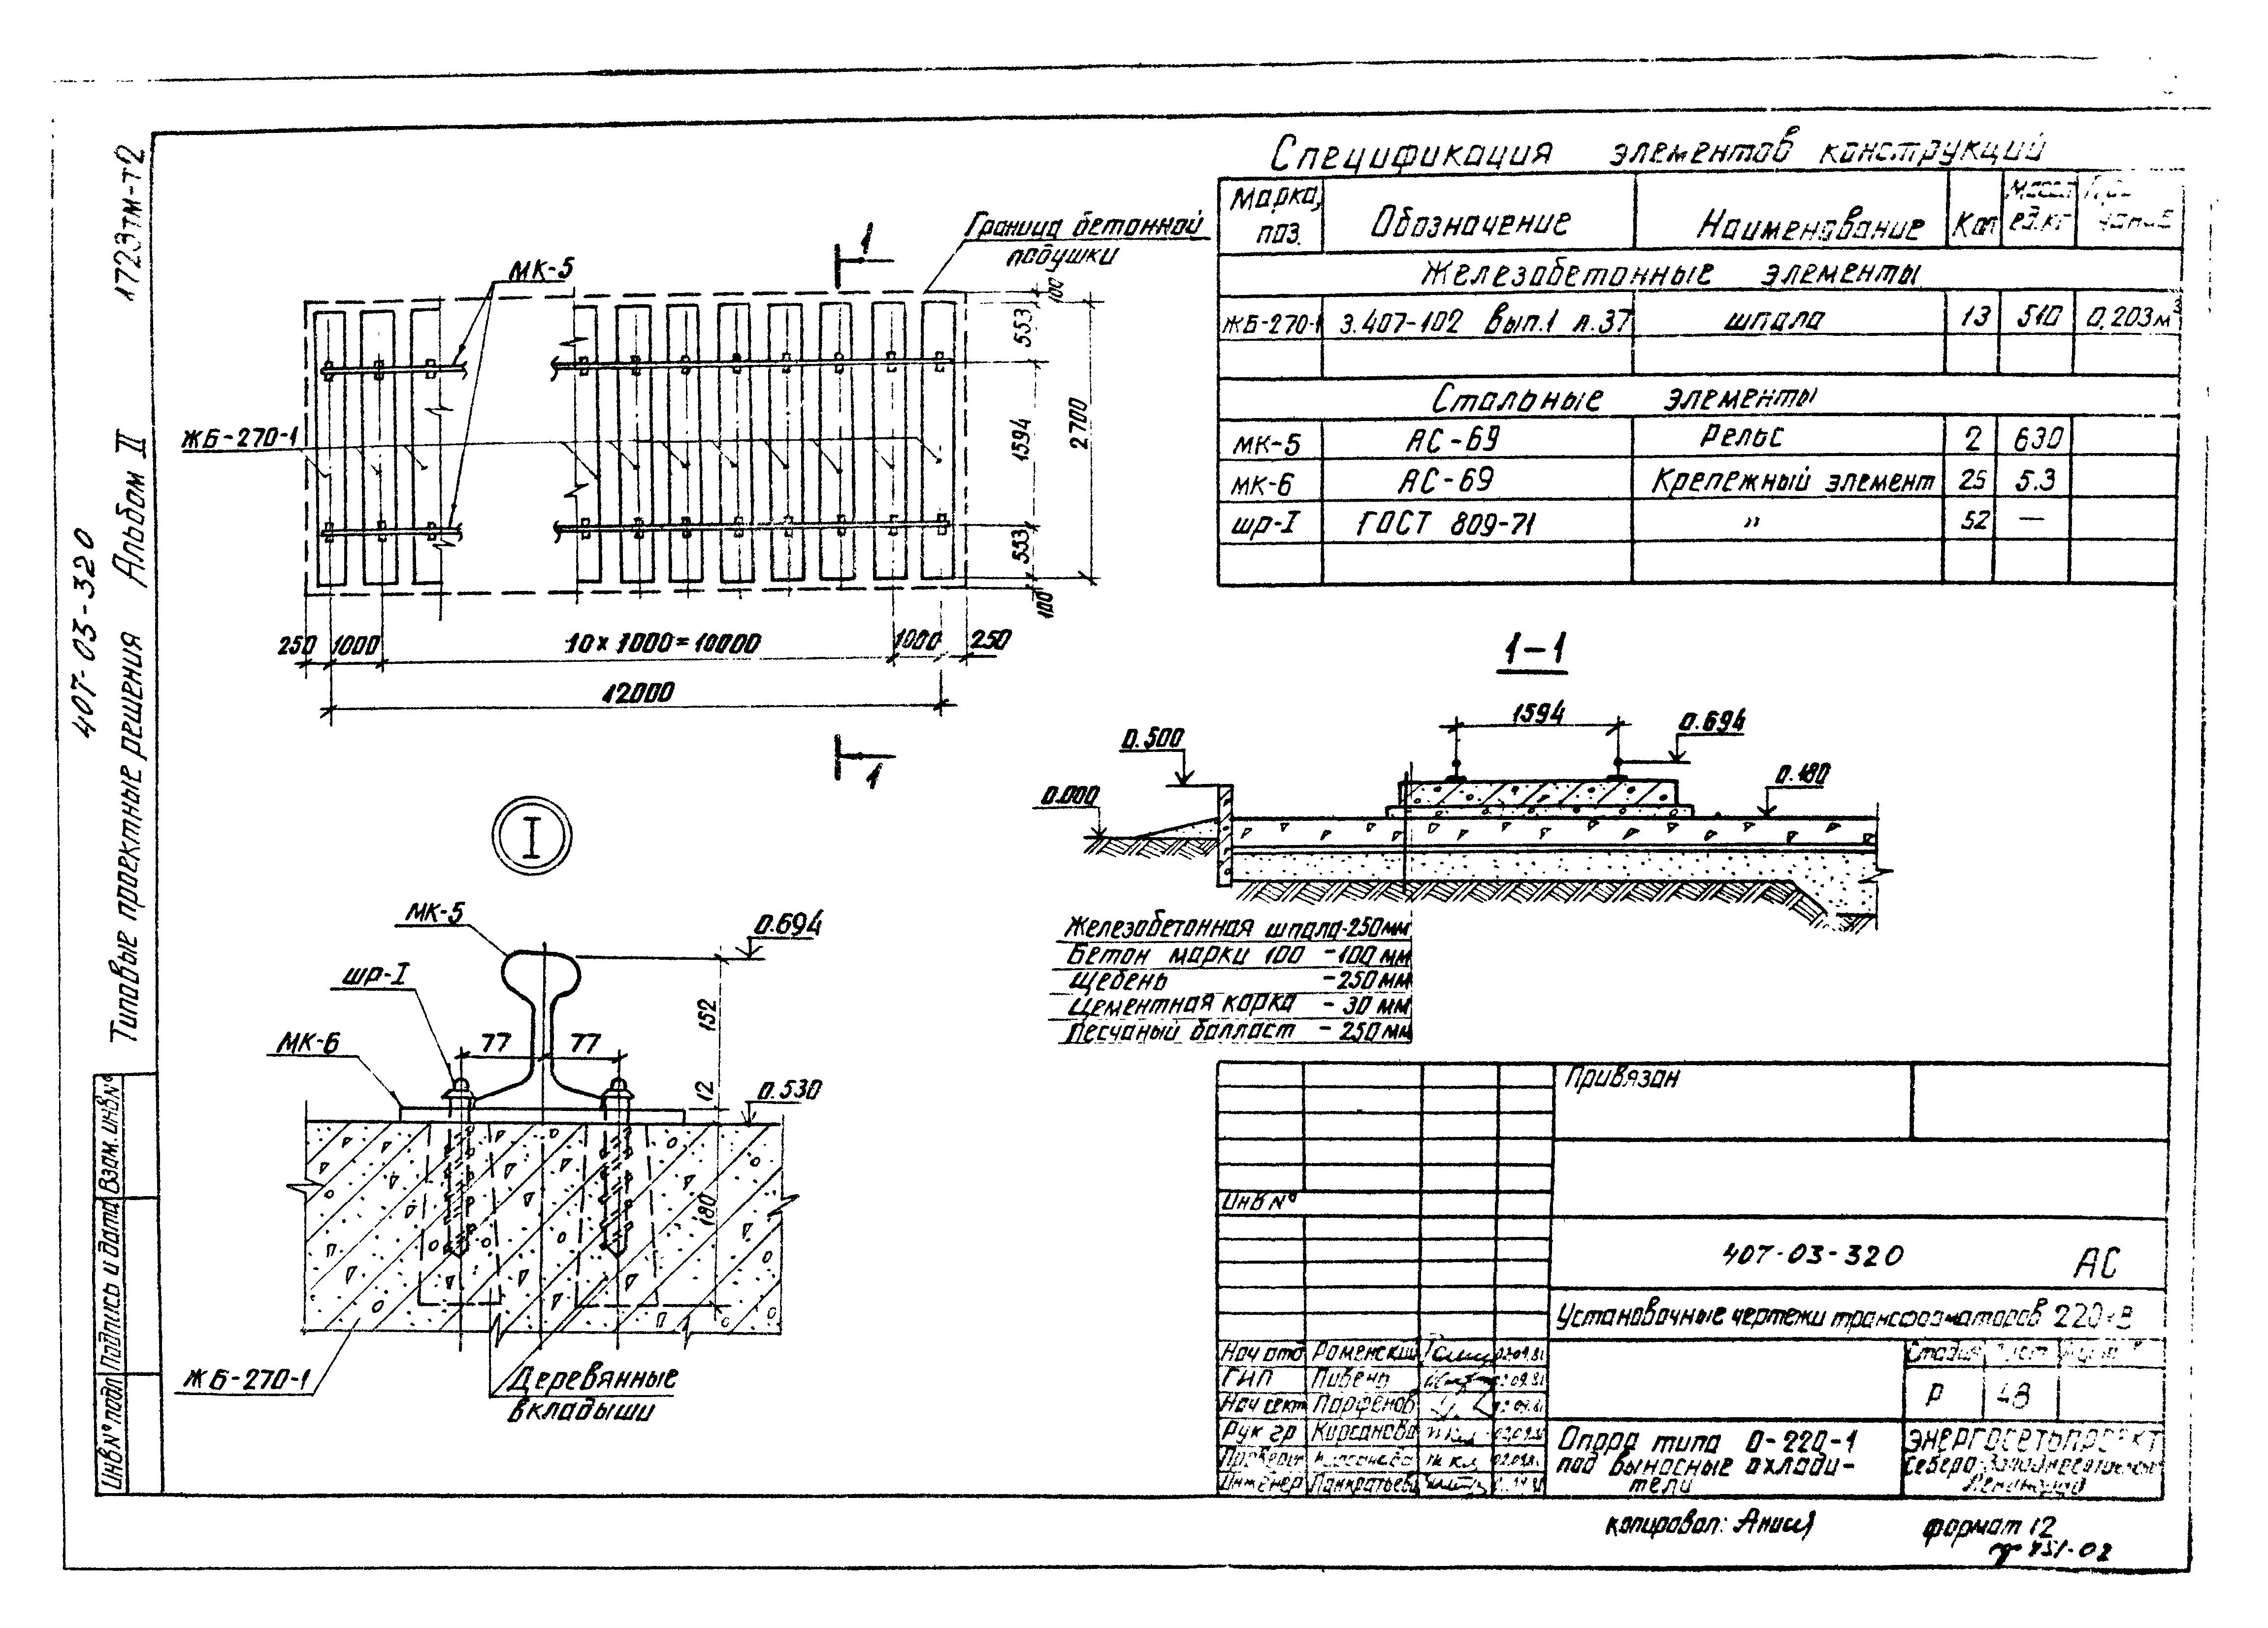 407-03-320
Типовые проектные решения Альбом II 1723тм-т2
Взам. инв№
Подпись и дата
Инв№ подл
МК-5
1
Граница бетонной
подушки
ЖБ-270-1
100
553
1594
553
100
2700
250
1000
10×1000=10000
1000
250
12000
1
Спецификация элементов конструкций
Марка, поз.
Обозначение
Наименование
Кол
Масса ед.кг
Железобетонные элементы
ЖБ-270-1 3.407-102 вып.1 л.37 шпала 13 510 0.203м³
Стальные элементы
МК-5 АС-69 Рельс 2 630
МК-6 АС-69 Крепежный элемент 26 5.3
шр-I ГОСТ 809-71 " 52 —
1-1
1594
0.694
0.500
0.180
0.000
Железобетонная шпала-250мм
Бетон марки 100 -100мм
Щебень -250мм
Цементная корка - 30 мм
Песчаный балласт - 250мм
I
МК-5
0.694
шр-I
152
77 77
МК-6
12
0.530
180
ЖБ-270-1
Деревянные
вкладыши
Привязан
Инв№
407-03-320 АС
Установочные чертежи трансформаторов 220кВ
Нач отд Роменский 02.09.81
ГИП Пивень
Нач сект Парфенов
Рук гр Кирсанова
Инженер Панкратьева
Стадия Лист
Р 48
Опора типа О-220-1
под выносные охлади-
тели
ЭНЕРГОСЕТЬПРОЕКТ
Северо-Западное отделение
Ленинград
копировал:
формат 12